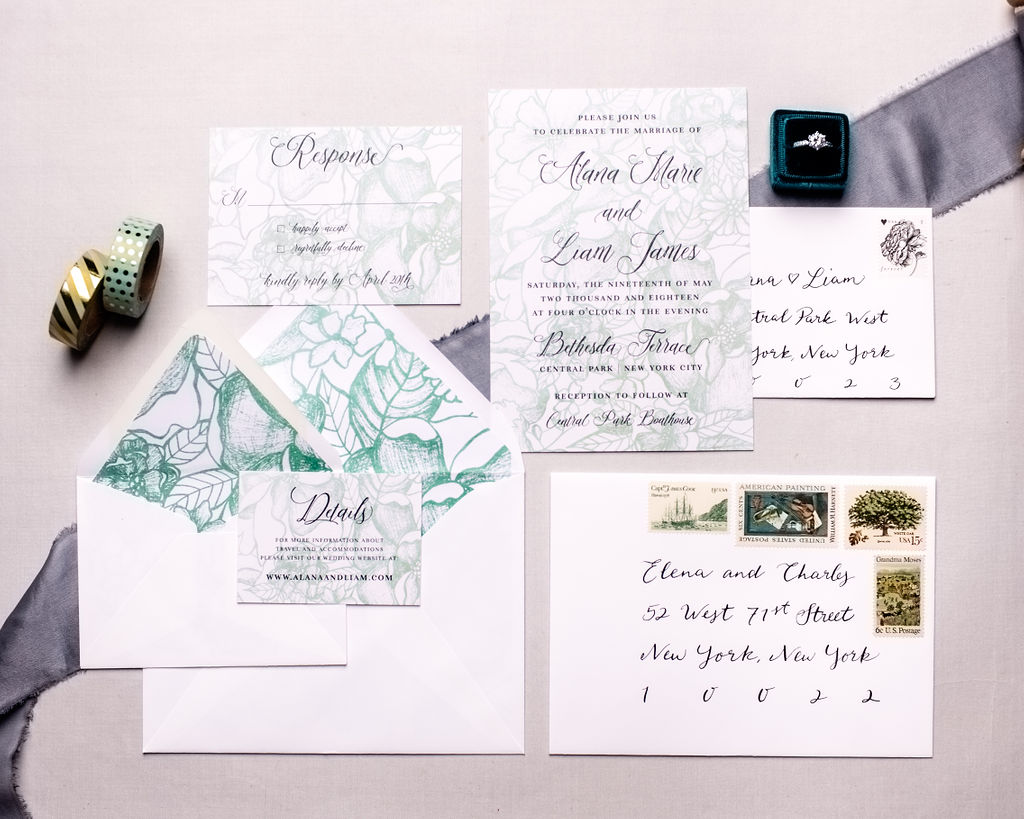 Response
M
happily accept
regretfully decline
kindly reply by April 20th
PLEASE JOIN US
TO CELEBRATE THE MARRIAGE OF
Alana Marie
and
Liam James
SATURDAY, THE NINETEENTH OF MAY
TWO THOUSAND AND EIGHTEEN
AT FOUR O'CLOCK IN THE EVENING
Bethesda Terrace
CENTRAL PARK | NEW YORK CITY
RECEPTION TO FOLLOW AT
Central Park Boathouse
forever
nna ♡ Liam
tral Park West
ork, New York
0 2 3
Details
FOR MORE INFORMATION ABOUT
TRAVEL AND ACCOMMODATIONS
PLEASE VISIT OUR WEDDING WEBSITE AT:
WWW.ALANAANDLIAM.COM
Capt. James Cook
13c USA
AMERICAN PAINTING
WILLIAM M. HARNETT
SIX CENTS
UNITED STATES POSTAGE
WHITE OAK
USA 15c
Grandma Moses
6c U.S. Postage
Elena and Charles
52 West 71st Street
New York, New York
1 0 0 2 2